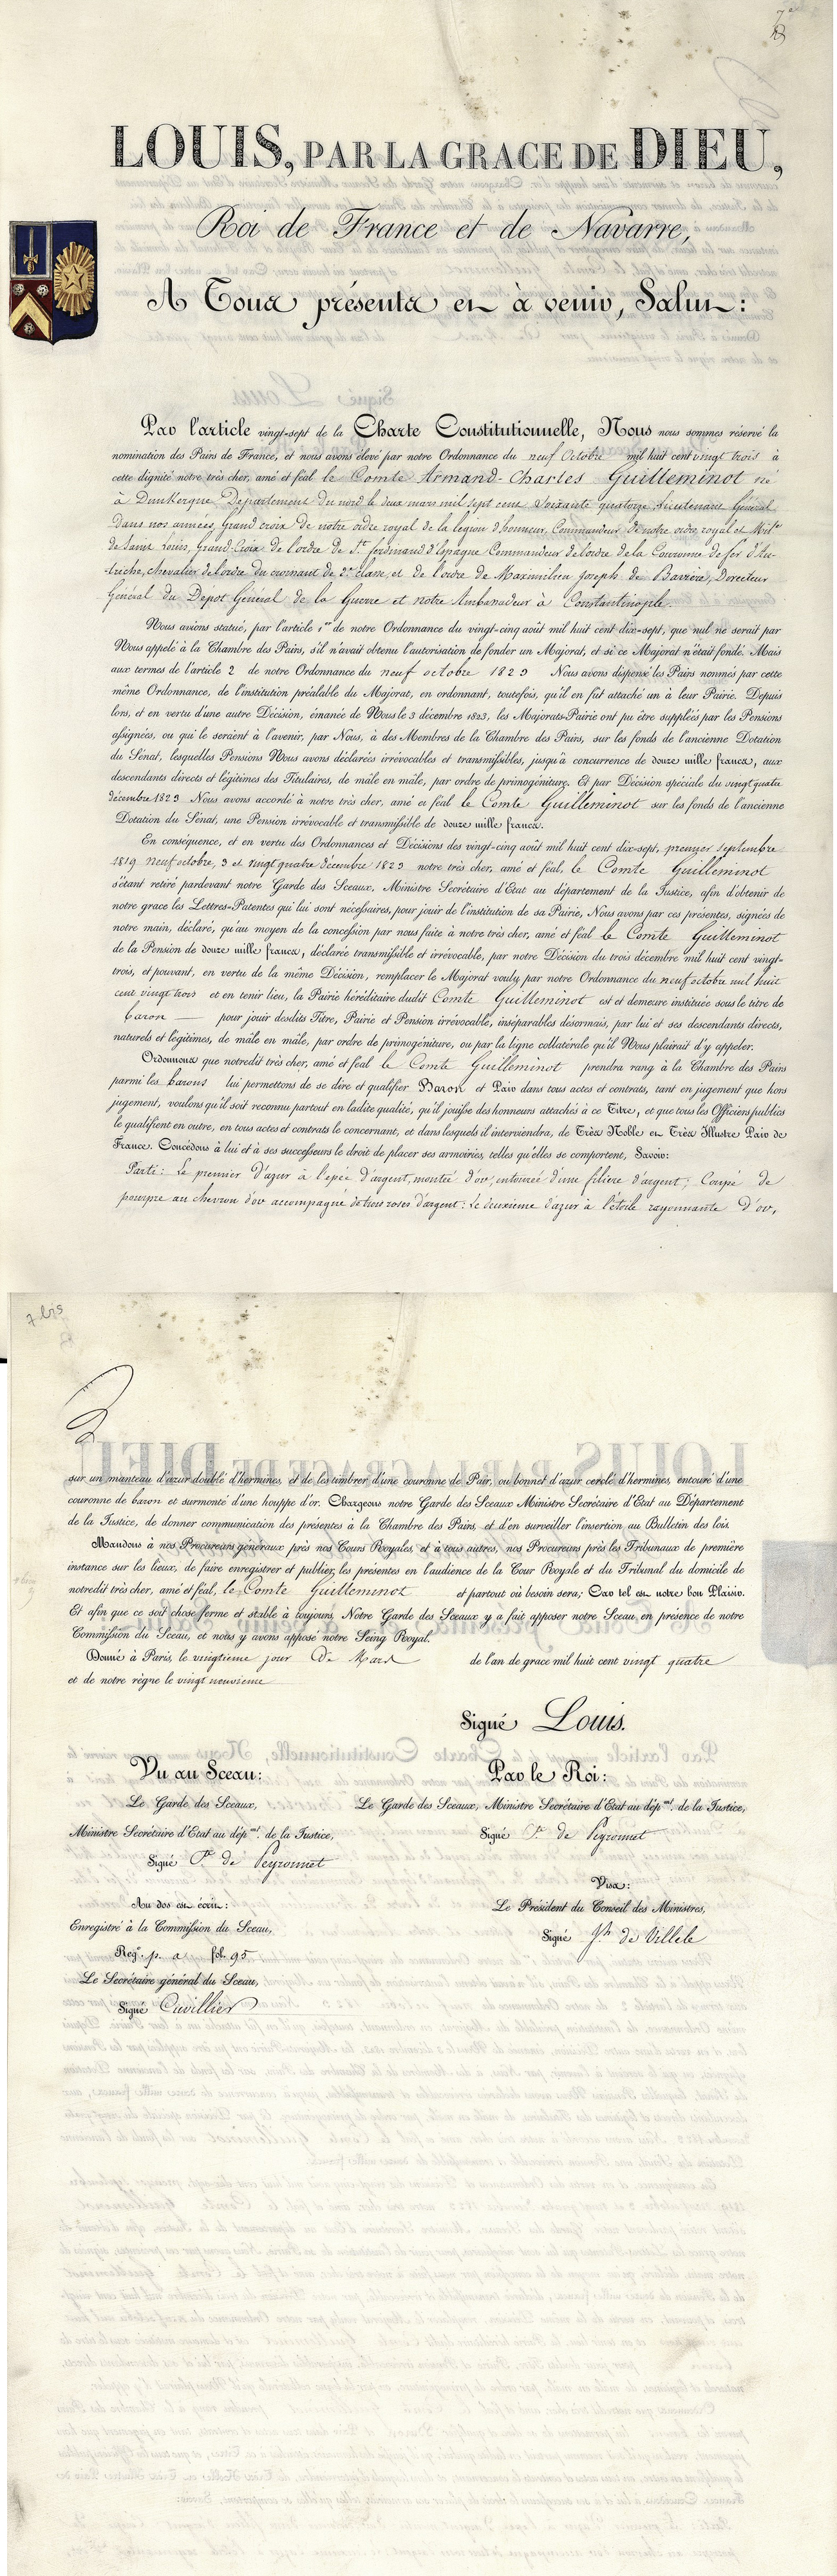 7e
LOUIS, PAR LA GRACE DE DIEU,
Roi de France et de Navarre,
A Tous présents et à venir, Salut:
Par l'article vingt-sept de la Charte Constitutionnelle, Nous nous sommes réservé la
nomination des Pairs de France, et nous avons élevé par notre Ordonnance du neuf Octobre mil huit cent vingt trois à
cette dignité notre très cher, amé et féal le Comte Armand-Charles Guilleminot né
à Dunkerque Département du nord le deux mars mil sept cent soixante quatorze Lieutenant Général
dans nos armées, Grand croix de notre ordre royal de la legion d'honneur, Commandeur de notre ordre royal et Milre
de Saint Louis, Grand-Croix de l'ordre de St ferdinand d'Espagne Commandeur de l'ordre de la Couronne de fer d'Au-
triche, chevalier de l'ordre du croissant de 2e classe, et de l'ordre de Maximilien Joseph de Bavière, Directeur
Général du Depot Général de la Guerre et notre Ambassadeur à Constantinople.
Nous avions statué, par l'article 1er de notre Ordonnance du vingt-cinq août mil huit cent dix-sept, que nul ne serait par
Nous appelé à la Chambre des Pairs, s'il n'avait obtenu l'autorisation de fonder un Majorat, et si ce Majorat n'était fondé. Mais
aux termes de l'article 2 de notre Ordonnance du neuf octobre 1823 Nous avons dispensé les Pairs nommés par cette
même Ordonnance, de l'institution préalable du Majorat, en ordonnant, toutefois, qu'il en fût attaché un à leur Pairie. Depuis
lors, et en vertu d'une autre Décision, émanée de Nous le 3 décembre 1823, les Majorats-Pairie ont pu être suppléés par les Pensions
assignées, ou qui le seraient à l'avenir, par Nous, à des Membres de la Chambre des Pairs, sur les fonds de l'ancienne Dotation
du Sénat, lesquelles Pensions Nous avons déclarées irrévocables et transmissibles, jusqu'à concurrence de douze mille francs, aux
descendants directs et légitimes des Titulaires, de mâle en mâle, par ordre de primogéniture. Et par Décision spéciale du vingt quatre
décembre 1823 Nous avons accordé à notre très cher, amé et féal le Comte Guilleminot sur les fonds de l'ancienne
Dotation du Sénat, une Pension irrévocable et transmissible de douze mille francs.
En conséquence, et en vertu des Ordonnances et Décisions des vingt-cinq août mil huit cent dix-sept, premier septembre
1819 neuf octobre, 3 et vingt quatre décembre 1823 notre très cher, amé et féal, le Comte Guilleminot
s'étant retiré pardevant notre Garde des Sceaux, Ministre Secrétaire d'Etat au département de la Justice, afin d'obtenir de
notre grace les Lettres-Patentes qui lui sont nécessaires, pour jouir de l'institution de sa Pairie, Nous avons par ces présentes, signées de
notre main, déclaré, qu'au moyen de la concession par nous faite à notre très cher, amé et féal le Comte Guilleminot
de la Pension de douze mille francs, déclarée transmissible et irrévocable, par notre Décision du trois décembre mil huit cent vingt-
trois, et pouvant, en vertu de la même Décision, remplacer le Majorat voulu par notre Ordonnance du neuf octobre mil huit
cent vingt trois et en tenir lieu, la Pairie héréditaire dudit Comte Guilleminot est et demeure instituée sous le titre de
baron — pour jouir desdits Titre, Pairie et Pension irrévocable, inséparables désormais, par lui et ses descendants directs,
naturels et légitimes, de mâle en mâle, par ordre de primogéniture, ou par la ligne collatérale qu'il Nous plairait d'y appeler.
Ordonnons que notredit très cher, amé et féal le Comte Guilleminot prendra rang à la Chambre des Pairs
parmi les barons lui permettons de se dire et qualifier Baron et Pair dans tous actes et contrats, tant en jugement que hors
jugement, voulons qu'il soit reconnu partout en ladite qualité, qu'il jouisse des honneurs attachés à ce Titre, et que tous les Officiers publics
le qualifient en outre, en tous actes et contrats le concernant, et dans lesquels il interviendra, de Très Noble et Très Illustre Pair de
France. Concédons à lui et à ses successeurs le droit de placer ses armoiries, telles qu'elles se comportent, Savoir:
Parti: Le premier d'azur à l'epée d'argent, montée d'or, entourée d'une filiere d'argent; Coupé de
pourpre au chevron d'or accompagné de trois roses d'argent: Le deuxième d'azur à l'étoile rayonnante d'or,
7 bis
sur un manteau d'azur doublé d'hermines, et de les timbrer d'une couronne de Pair, ou bonnet d'azur cerclé d'hermines, entouré d'une
couronne de baron et surmonté d'une houppe d'or. Chargeons notre Garde des Sceaux Ministre Secrétaire d'Etat au Département
de la Justice, de donner communication des présentes à la Chambre des Pairs, et d'en surveiller l'insertion au Bulletin des lois.
Mandons à nos Procureurs généraux près nos Cours Royales, et à tous autres, nos Procureurs près les Tribunaux de première
instance sur les lieux, de faire enregistrer et publier les présentes en l'audience de la Cour Royale et du Tribunal du domicile de
notredit très cher, amé et féal, le Comte Guilleminot et partout où besoin sera; Car tel est notre bon Plaisir.
Et afin que ce soit chose ferme et stable à toujours, Notre Garde des Sceaux y a fait apposer notre Sceau, en présence de notre
Commission du Sceau, et nous y avons apposé notre Seing Royal.
Donné à Paris, le vingtieme jour de Mars de l'an de grace mil huit cent vingt quatre
et de notre règne le vingt neuvieme
Signé Louis.
Vu au Sceau:
Le Garde des Sceaux,
Ministre Secrétaire d'Etat au dépmt. de la Justice,
Signé Cte de Peyronnet
Au dos est écrit:
Enregistré à la Commission du Sceau,
Regre. p. a fol. 95
Le Secrétaire général du Sceau,
Signé Cuvillier
Par le Roi:
Le Garde des Sceaux, Ministre Secrétaire d'Etat au dépmt. de la Justice,
Signé Cte de Peyronnet
Visa:
Le Président du Conseil des Ministres,
Signé Jh de Villele